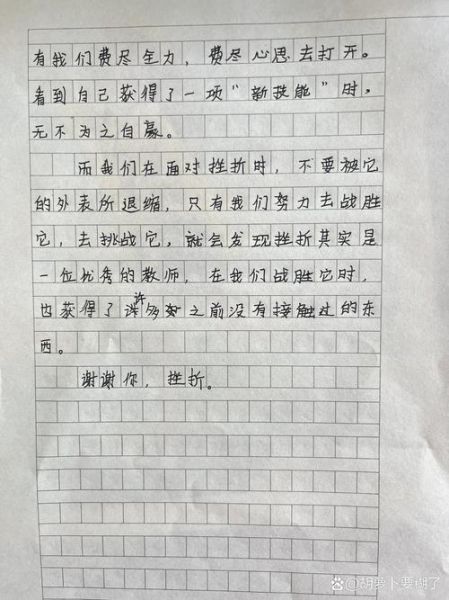 有我们费尽全力，费尽心思去打开。
看到自己获得了一项“新技能”时，
无不为之自赢。
而我们在面对挫折时，不要被它
的外表所退缩，只有我们努力去战胜
它，去挑战它，就会发现挫折其实是
一位优秀的教师，在我们战胜它时，
也获得了许多之前没有接触过的东
西。
谢谢你，挫折。
胡萝卜要糊了